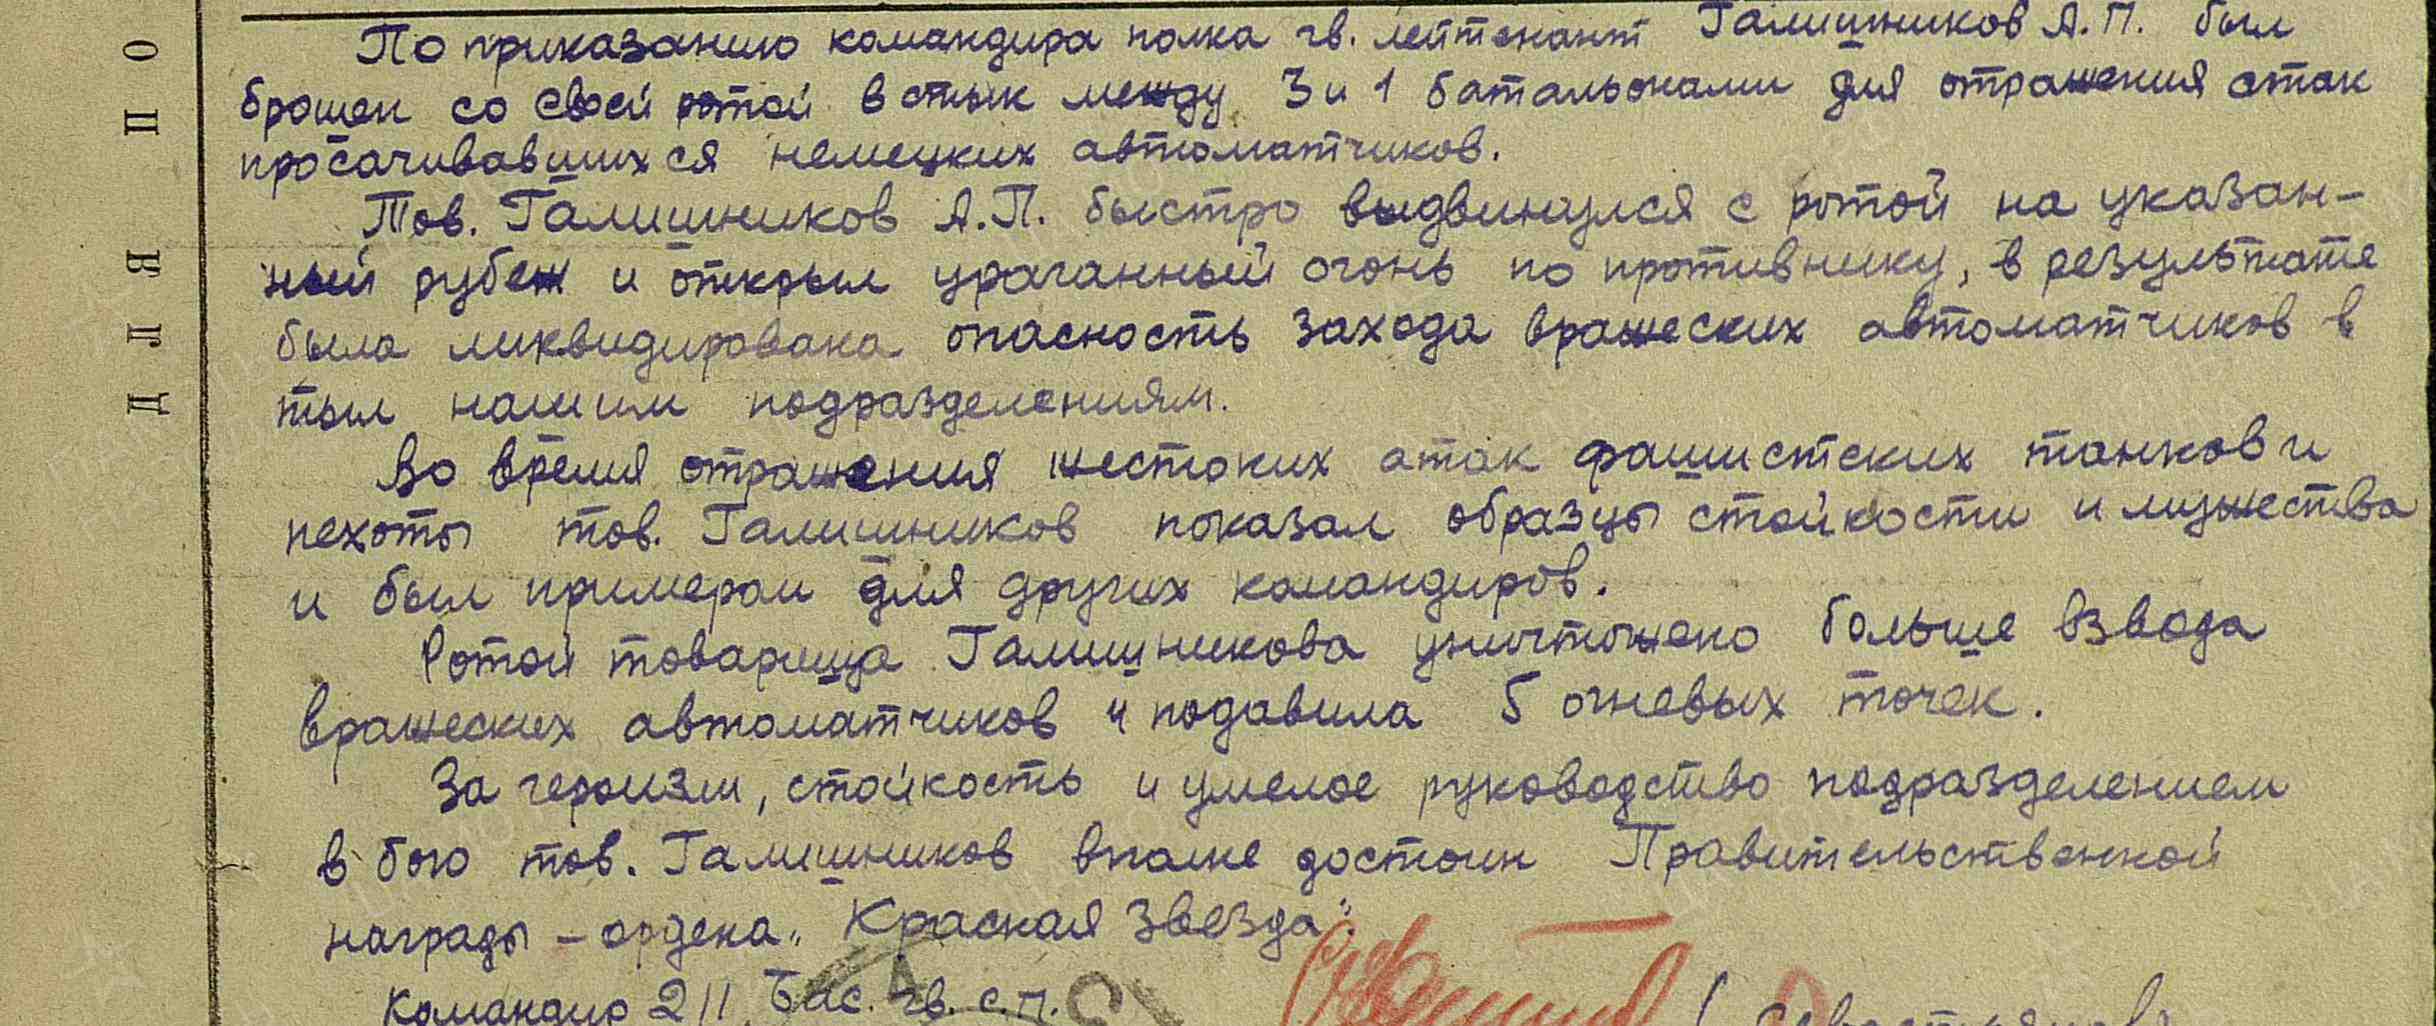 По приказанию командира полка гв. лейтенант Галишников А.П. был
брошен со своей ротой в стык между 3 и 1 батальонами для отражения атак
просачивавшихся немецких автоматчиков.
Тов. Галишников А.П. быстро выдвинулся с ротой на указан-
ный рубеж и открыл ураганный огонь по противнику, в результате
была ликвидирована опасность захода вражеских автоматчиков в
тыл нашим подразделениям.
Во время отражения жестоких атак фашистских танков и
пехоты тов. Галишников показал образцы стойкости и мужества
и был примером для других командиров.
Ротой товарища Галишникова уничтожено больше взвода
вражеских автоматчиков и подавила 5 огневых точек.
За героизм, стойкость и умелое руководство подразделением
в бою тов. Галишников вполне достоин Правительственной
награды – ордена „Красная Звезда".
Командир 211 Бас. гв. с.п.
ДЛЯ ПО